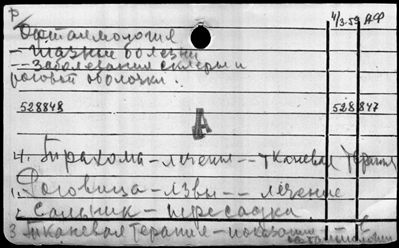 Р/ 4/3.59 АФ
Офталмология
- Глазные болезни
-- Заболевания склеры и
роговой оболочки.
528848 528847
А
4. Трахома - лечение -- тканевая терапия
1. Роговица - язвы -- лечение
2. Сальник - пересадка
3 Тканевая терапия - показания